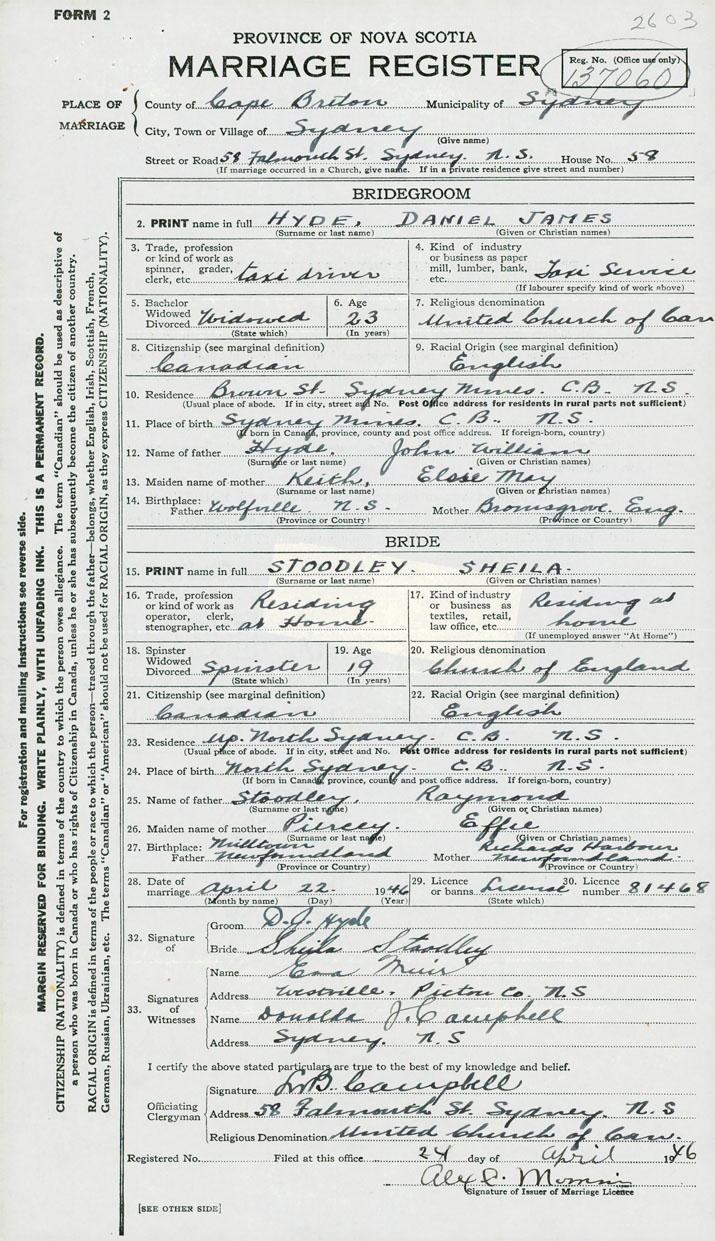 FORM 2
2603
PROVINCE OF NOVA SCOTIA
MARRIAGE REGISTER
Reg. No. (Office use only)
137060
PLACE OF MARRIAGE
County of Cape Breton Municipality of Sydney
City, Town or Village of Sydney
(Give name)
Street or Road 58 Falmouth St. Sydney. N.S. House No. 58
(If marriage occurred in a Church, give name. If in a private residence give street and number)
BRIDEGROOM
2. PRINT name in full HYDE, DANIEL JAMES
(Surname or last name) (Given or Christian names)
3. Trade, profession or kind of work as spinner, grader, clerk, etc. taxi driver
4. Kind of industry or business as paper mill, lumber, bank, etc. Taxi Service
(If labourer specify kind of work above)
5. Bachelor Widowed Divorced Widowed
(State which)
6. Age 23
(In years)
7. Religious denomination
United Church of Can
8. Citizenship (see marginal definition)
Canadian
9. Racial Origin (see marginal definition)
English
10. Residence Brown St. Sydney Mines. C.B. N.S.
(Usual place of abode. If in city, street and No. Post Office address for residents in rural parts not sufficient)
11. Place of birth Sydney Mines. C.B. N.S.
(If born in Canada, province, county and post office address. If foreign-born, country)
12. Name of father Hyde, John William
(Surname or last name) (Given or Christian names)
13. Maiden name of mother Keith, Elsie May
(Surname or last name) (Given or Christian names)
14. Birthplace: Father Wolfville N.S. Mother Bromsgrove Eng.
(Province or Country) (Province or Country)
BRIDE
15. PRINT name in full STOODLEY. SHEILA.
(Surname or last name) (Given or Christian names)
16. Trade, profession or kind of work as operator, clerk, stenographer, etc. Residing at Home
17. Kind of industry or business as textiles, retail, law office, etc. Residing at home
(If unemployed answer "At Home")
18. Spinster Widowed Divorced Spinster
(State which)
19. Age 19
(In years)
20. Religious denomination
Church of England
21. Citizenship (see marginal definition)
Canadian
22. Racial Origin (see marginal definition)
English
23. Residence Up. North Sydney. C.B. N.S.
(Usual place of abode. If in city, street and No. Post Office address for residents in rural parts not sufficient)
24. Place of birth North Sydney. C.B. N.S.
(If born in Canada, province, county and post office address. If foreign-born, country)
25. Name of father Stoodley, Raymond
(Surname or last name) (Given or Christian names)
26. Maiden name of mother Piercey. Effie
(Surname or last name) (Given or Christian names)
27. Birthplace: Father Milltown Newfoundland Mother Richards Harbour Newfoundland.
(Province or Country) (Province or Country)
28. Date of marriage April 22 1946
(Month by name) (Day) (Year)
29. Licence or banns License
(State which)
30. Licence number 81468
32. Signature of
Groom D.J. Hyde
Bride Sheila Stoodley
33. Signatures of Witnesses
Name Ema Muir
Address Westville. Pictou Co. N.S
Name Donalda J. Campbell
Address Sydney. N.S
I certify the above stated particulars are true to the best of my knowledge and belief.
Officiating Clergyman
Signature Campbell
Address 58 Falmouth St. Sydney. N.S
Religious Denomination United Church of Can.
Registered No. Filed at this office 24 day of April 1946
Signature of Issuer of Marriage Licence
[SEE OTHER SIDE]
For registration and mailing instructions see reverse side.
MARGIN RESERVED FOR BINDING. WRITE PLAINLY, WITH UNFADING INK. THIS IS A PERMANENT RECORD.
CITIZENSHIP (NATIONALITY) is defined in terms of the country to which the person owes allegiance. The term "Canadian" should be used as descriptive of
a person who was born in Canada or who has rights of Citizenship in Canada, unless he or she has subsequently become the citizen of another country.
RACIAL ORIGIN is defined in terms of the people or race to which the person—traced through the father—belongs, whether English, Irish, Scottish, French,
German, Russian, Ukrainian, etc. The terms "Canadian" or "American" should not be used for RACIAL ORIGIN, as they express CITIZENSHIP (NATIONALITY).